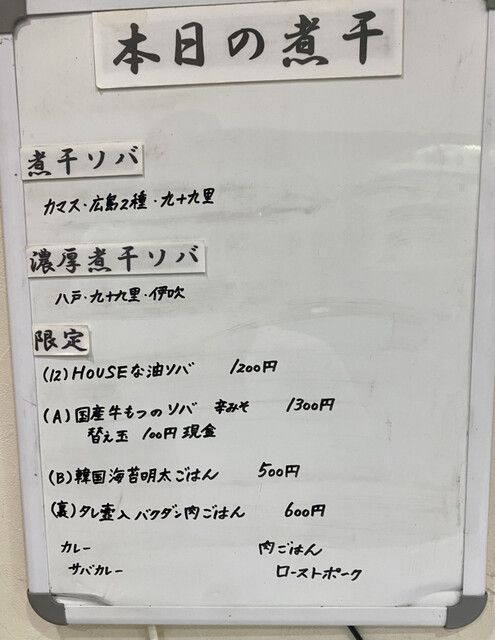 本日の煮干
煮干ソバ
カマス・広島2種・九十九里
濃厚煮干ソバ
八戸・九十九里・伊吹
限定
(12)HOUSEな油ソバ 1200円
(A)国産牛もつのソバ 辛みそ 1300円
替え玉 100円 現金
(B)韓国海苔明太ごはん 500円
(裏)タレ壷入バクダン肉ごはん 600円
カレー 肉ごはん
サバカレー ローストポーク